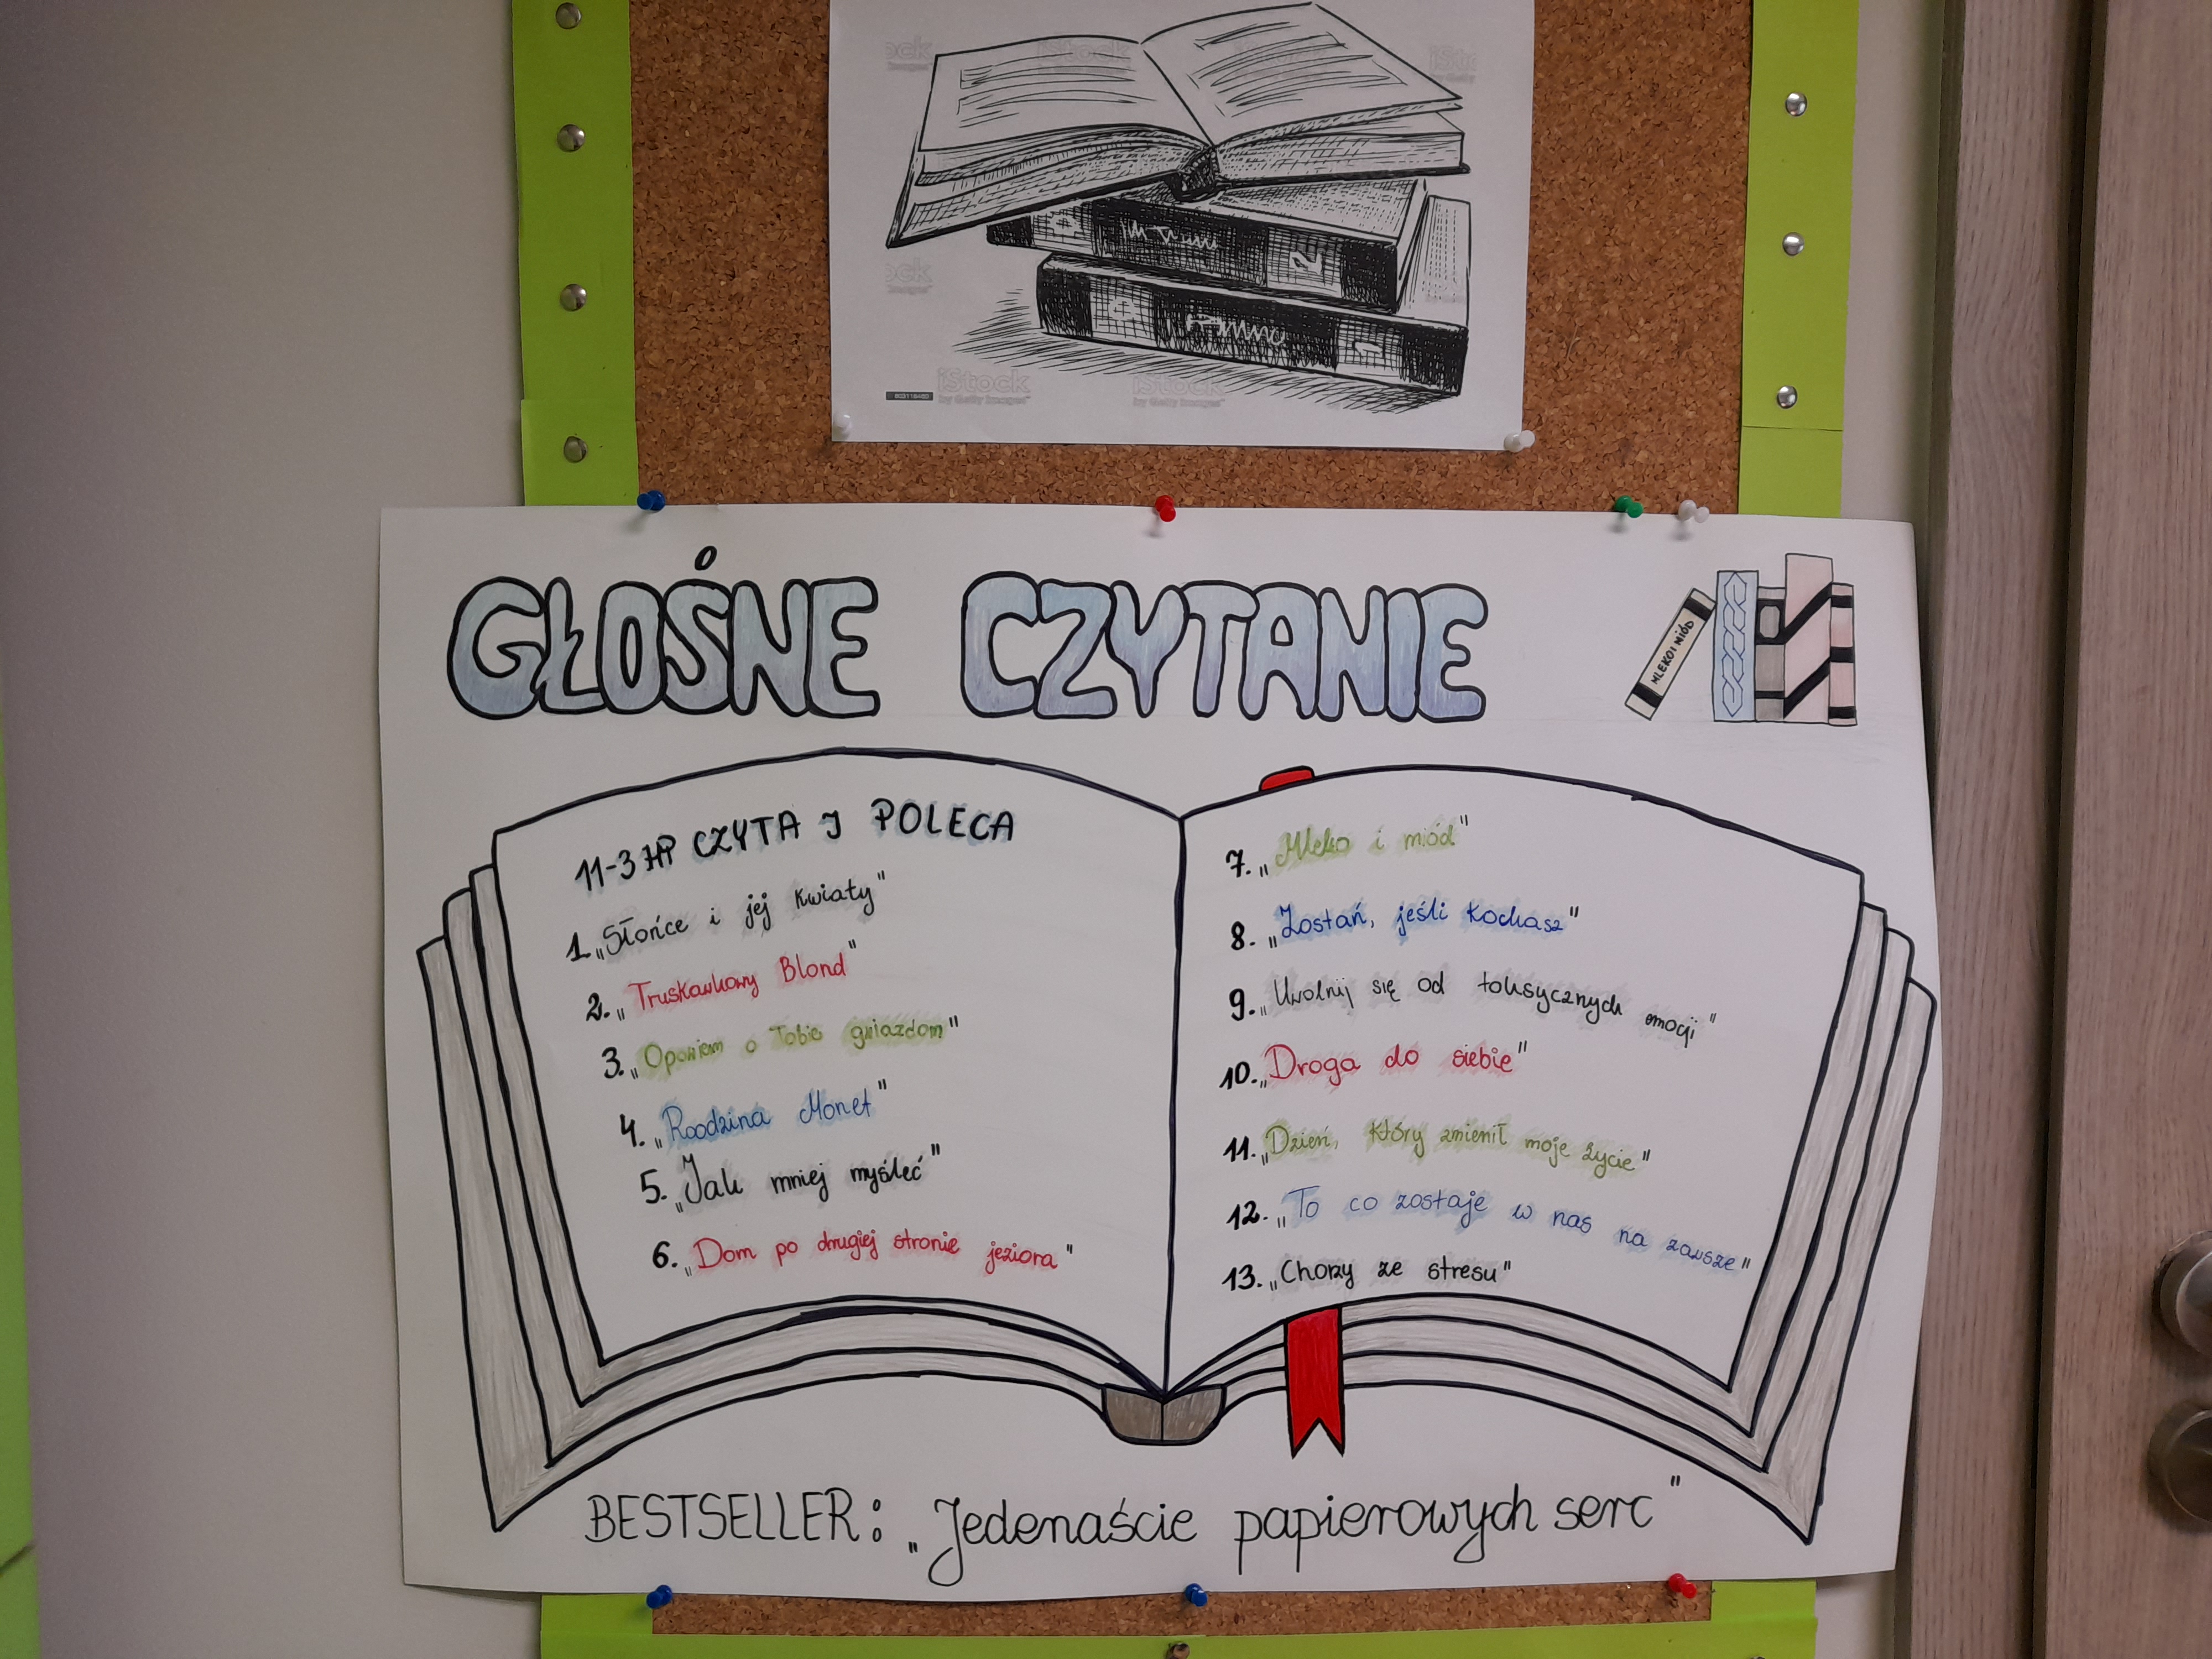 iStock
by Getty Images
iStock
by Getty Images
GŁOŚNE CZYTANIE
MLEKO I MIÓD
11-3 HP CZYTA I POLECA
1. „Słońce i jej kwiaty"
2. „Truskawkowy Blond"
3. „Opowiem o Tobie gwiazdom"
4. „Roodzina Monet"
5. „Jak mniej myśleć"
6. „Dom po drugiej stronie jeziora"
7. „Mleko i miód"
8. „Zostań, jeśli kochasz"
9. „Uwolnij się od toksycznych emocji"
10. „Droga do siebie"
11. „Dzień, który zmienił moje życie"
12. „To co zostaje w nas na zawsze"
13. „Chorzy ze stresu"
BESTSELLER: „Jedenaście papierowych serc"